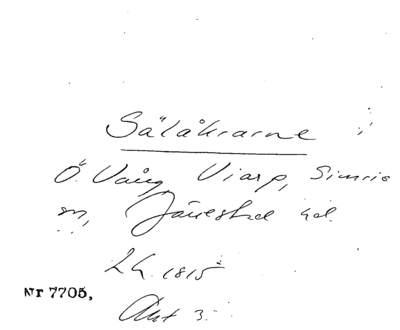 Sälåkrarne
Ö. Vång, Viarp, Simris
sn, Järrestad hd.
LH. 1815
Akt 3.
Nr 7705,